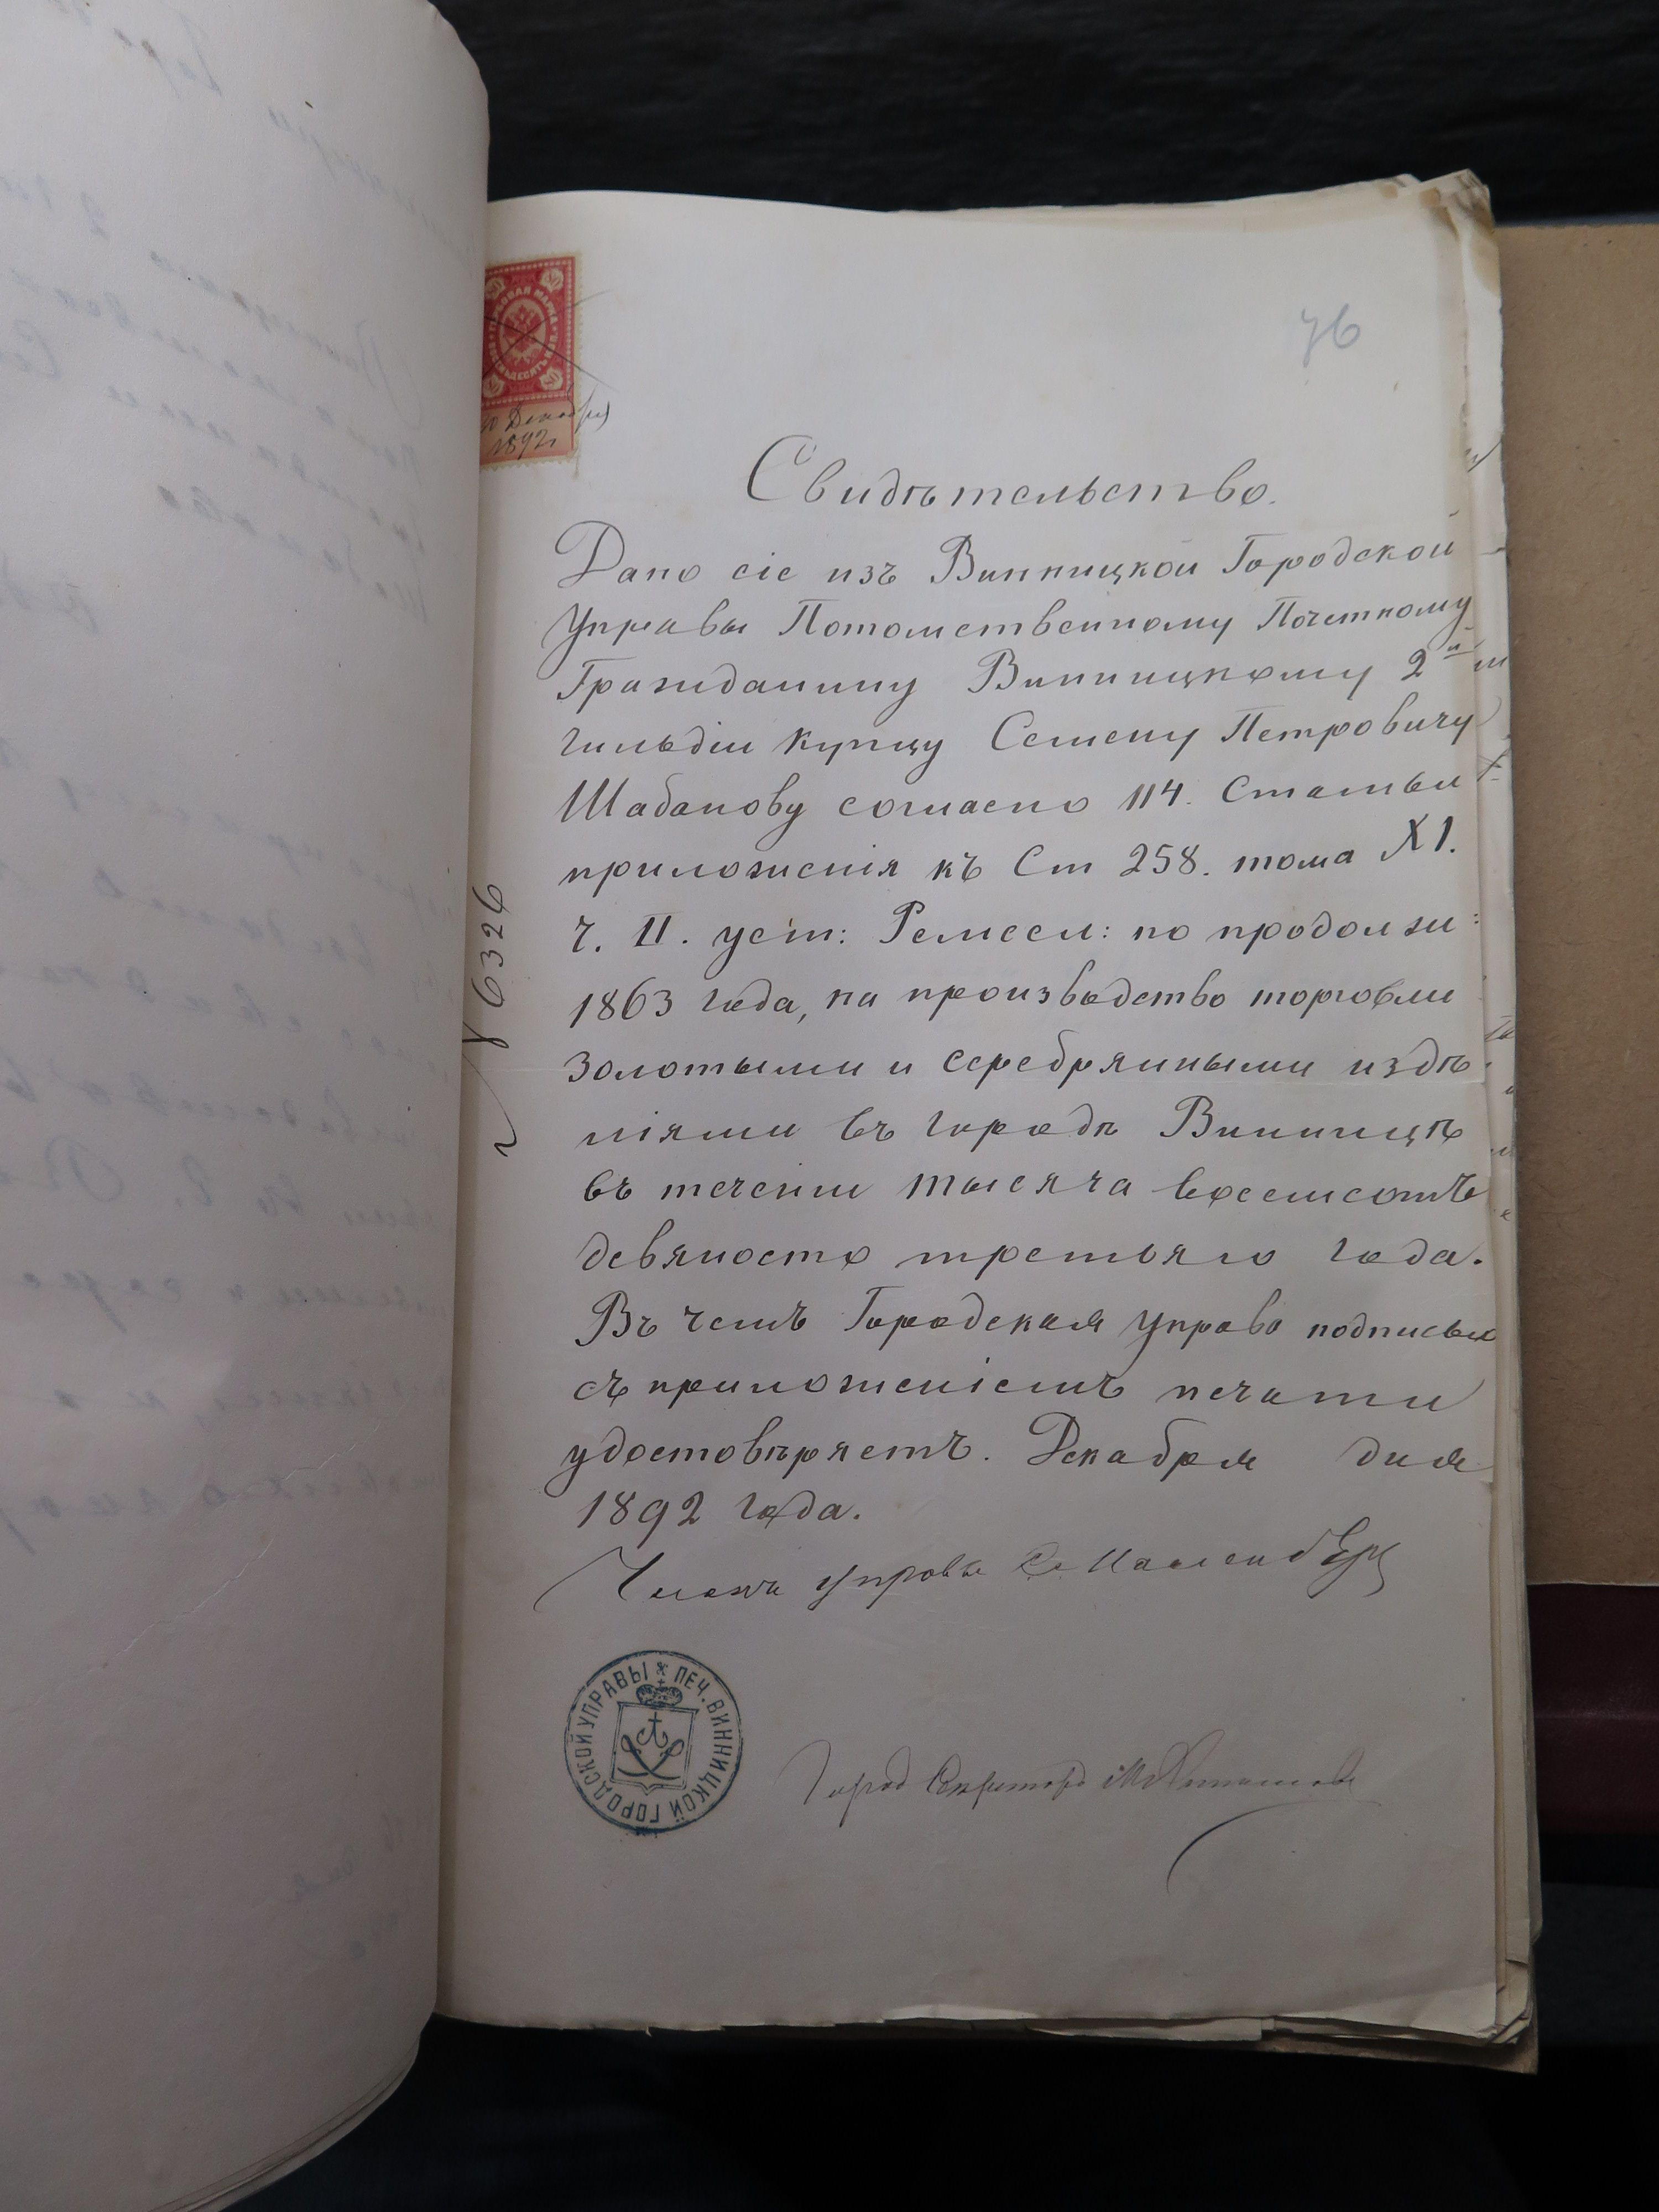 76
ГЕРБОВАЯ МАРКА
ВОСЕМЬДЕСЯТЪ КОП.
Декабря
1892 г
Свидѣтельство.
Дано сіе изъ Винницкой Городской
Управы Потомственному Почетному
Гражданину Винницкому 2й
гильдіи Купцу Семену Петровичу
Шабанову согласно 114. Статьи
приложенія къ Ст 258. тома XI.
ч. II. уст: Ремесл: по продолж:
1863 года, на производство торговли
золотыми и серебряными издѣ
ліями въ городѣ Винницѣ
въ теченіи тысяча восемсотъ
девяносто третьяго года.
Въ чемъ Городская Управа подписью
съ приложеніемъ печати
удостовѣряетъ. Декабря дня
1892 года.
6326
Членъ управы
ПЕЧ. ВИННИЦКОЙ ГОРОДСКОЙ УПРАВЫ
Город Секретарь